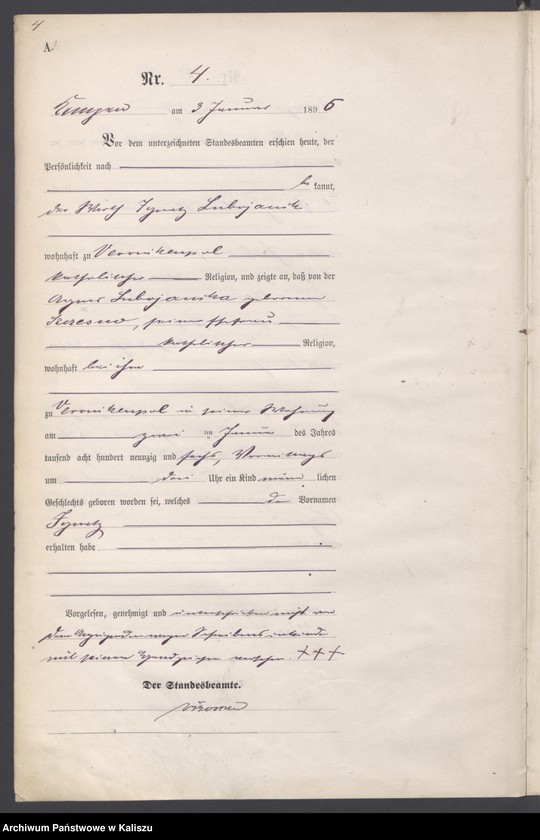 4
A.
Nr. 4.
Kempen am 3 Januar 1896
Vor dem unterzeichneten Standesbeamten erschien heute, der
Persönlichkeit nach
be kannt,
der Wirth Ignatz Lubojanski
wohnhaft zu Weronikenpol
katholischer Religion, und zeigte an, daß von der
Agnes Lubojanska geborenen
seiner Ehefrau
katholischer Religion,
wohnhaft bei ihm
zu Weronikenpol in seiner Wohnung
am zwei ten Januar des Jahres
tausend acht hundert neunzig und sechs, Vormittags
um drei Uhr ein Kind männ lichen
Geschlechts geboren worden sei, welches den Vornamen
Ignatz
erhalten habe
Vorgelesen, genehmigt und
dem wegen Schreibens
mit seinen Handzeichen versehen. +++
Der Standesbeamte.
Archiwum Państwowe w Kaliszu